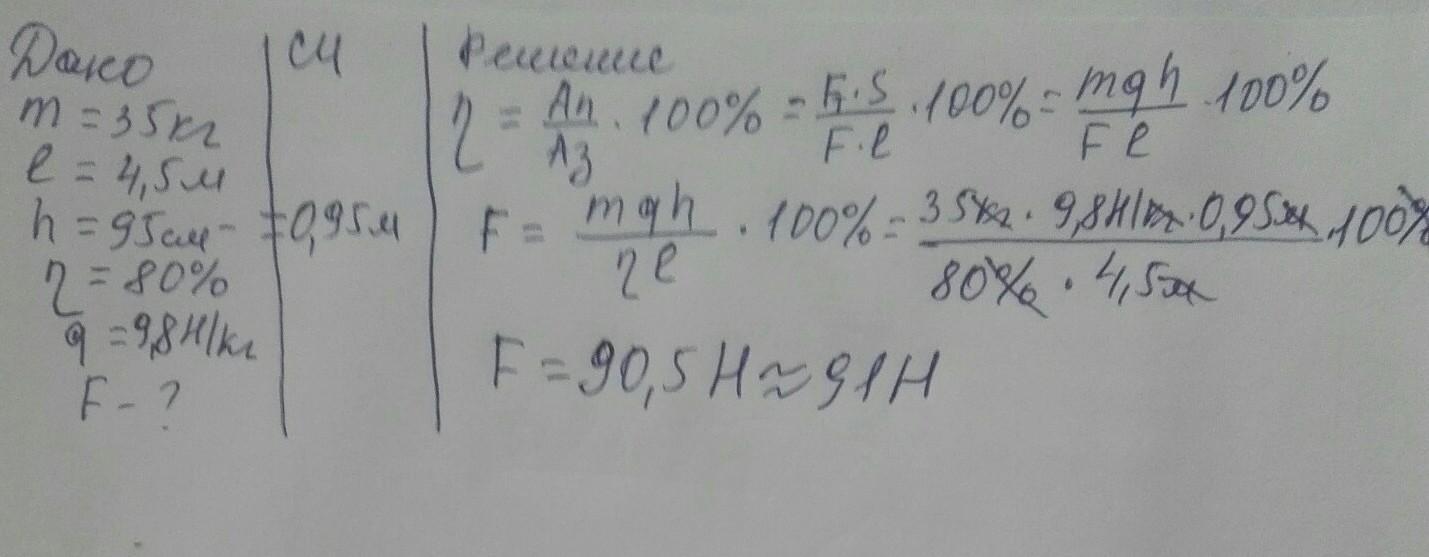 Дано
m = 35кг
l = 4,5м
h = 95см
η = 80%
g = 9,8Н/кг
F - ?
СИ
= 0,95м
Решение
η = Aп/Aз · 100% = F₁·S/F·l · 100% = mgh/Fl · 100%
F = mgh/ηl · 100% = 35кг · 9,8Н/кг · 0,95м/80% · 4,5м · 100%
F = 90,5Н ≈ 91Н